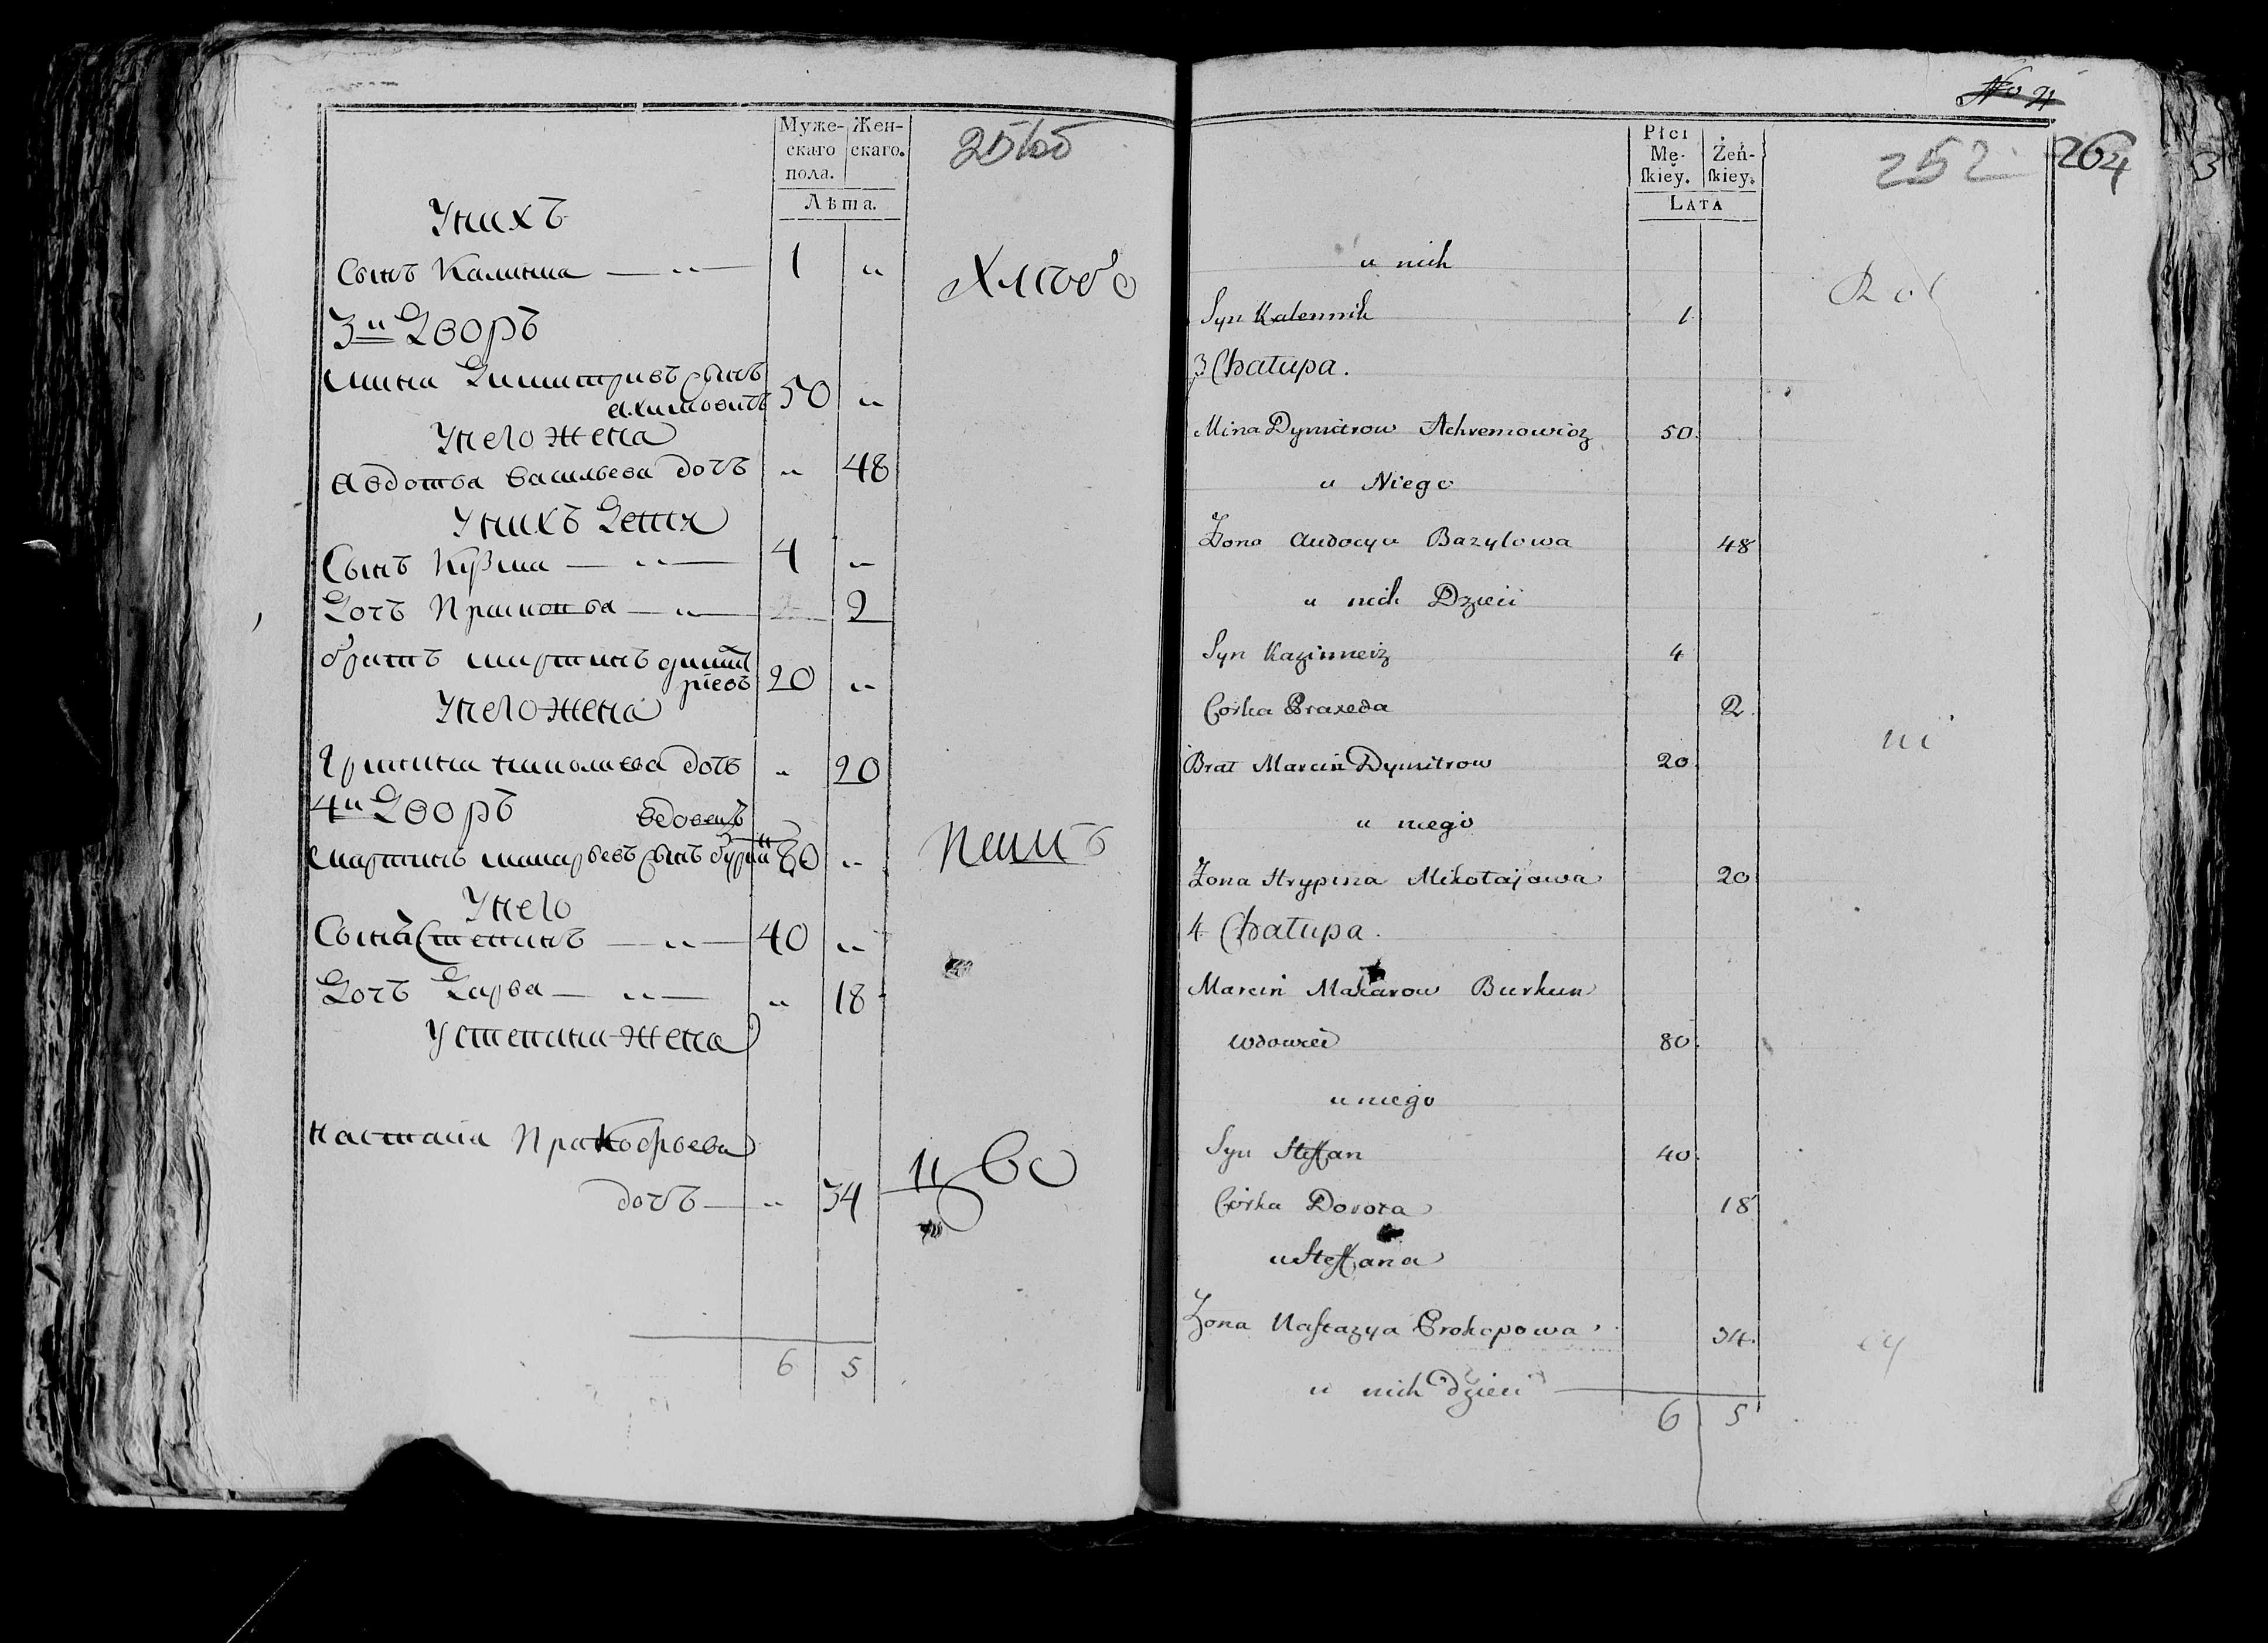 Муже-
скаго
пола.
Жен-
скаго.
Лѣта.
251об
Уних Ъ
Сынъ Калина — " — 1 "
Хлѣбо
3й Дворъ
Мина Димитривъ сынъ
Ахимовичъ 50 "
Унего жена
Авдотьа Васильева дочъ " 48
Унихъ Дети
Сынъ Кузма — " — 4 "
Дочъ Прасковьа — " — 2
братъ Мартинъ Димит
риевъ 20 "
Унего жена
Гришина николаева дочъ " 20
4й Дворъ
вдовецъ
Мартинъ Макарьевъ сынъ 80 "
Пашъ
Унего
Сынъ Степанъ — " — 40 "
Дочъ Дарья — " — " 18
Устепана жена
Настасиа Пракофьева
дочъ — " 34
6 5
No 4
Płci
Mę-
ſkiey.
Żeń-
ſkiey.
LATA
252
264
3
u nich
Syn Kalennik 1
3 Chałupa.
Mina Dymitrow Achremowicz 50
u Niego
Żona Audocya Bazylowa 48
u nich Dzieci
Syn Kazimierz 4
Corka Praxeda 2
Brat Marcin Dymitrow 20
u niego
Żona Hrypina Mikołajowa 20
4 Chałupa.
Marcin Makarow Burkun
wdowiec 80
u niego
Syn Steffan 40
Córka Dorota 18
u Steffana
Żona Naſtazya Prokopowa 34
u nich dzieci
6 5